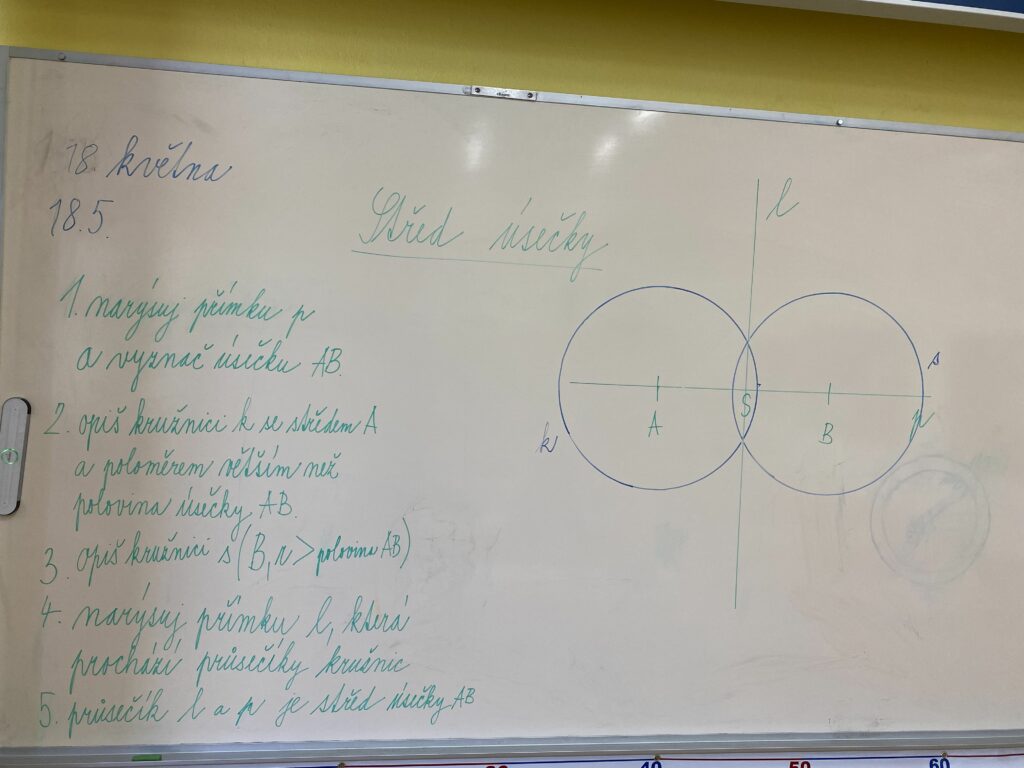 18. května
18.5.
Střed úsečky
1. narýsuj přímku p
a vyznač úsečku AB.
2. opiš kružnici k se středem A
a poloměrem větším než
polovina úsečky AB.
3. opiš kružnici s (B, r > polovina AB)
4. narýsuj přímku l, která
prochází průsečíky kružnic
5. průsečík l a p je střed úsečky AB
l
s
k
A
S
B
p
40
50
60